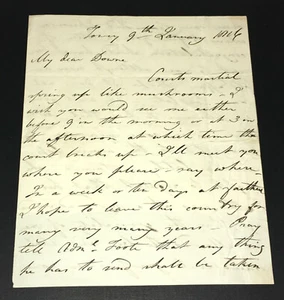 Torry 9th January 1816
My dear Downe
Courts martial
spring up like mushrooms - I
wish you would see me either
before 9 in the morning or at 3 in
the afternoon at which time the
court breaks up - I'll meet you
where you please - say where -
In a week or ten Days at farthest
I hope to leave this country for
many very many years - Pray
tell Adml. Foote that any thing
he has to send shall be taken